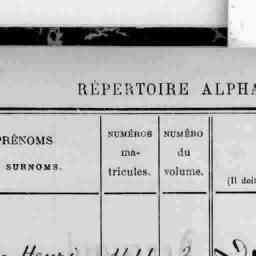 RÉPERTOIRE ALPHA
PRÉNOMS
SURNOMS.
NUMÉROS
ma-
tricules.
NUMÉRO
du
volume.
(Il doit
Henri